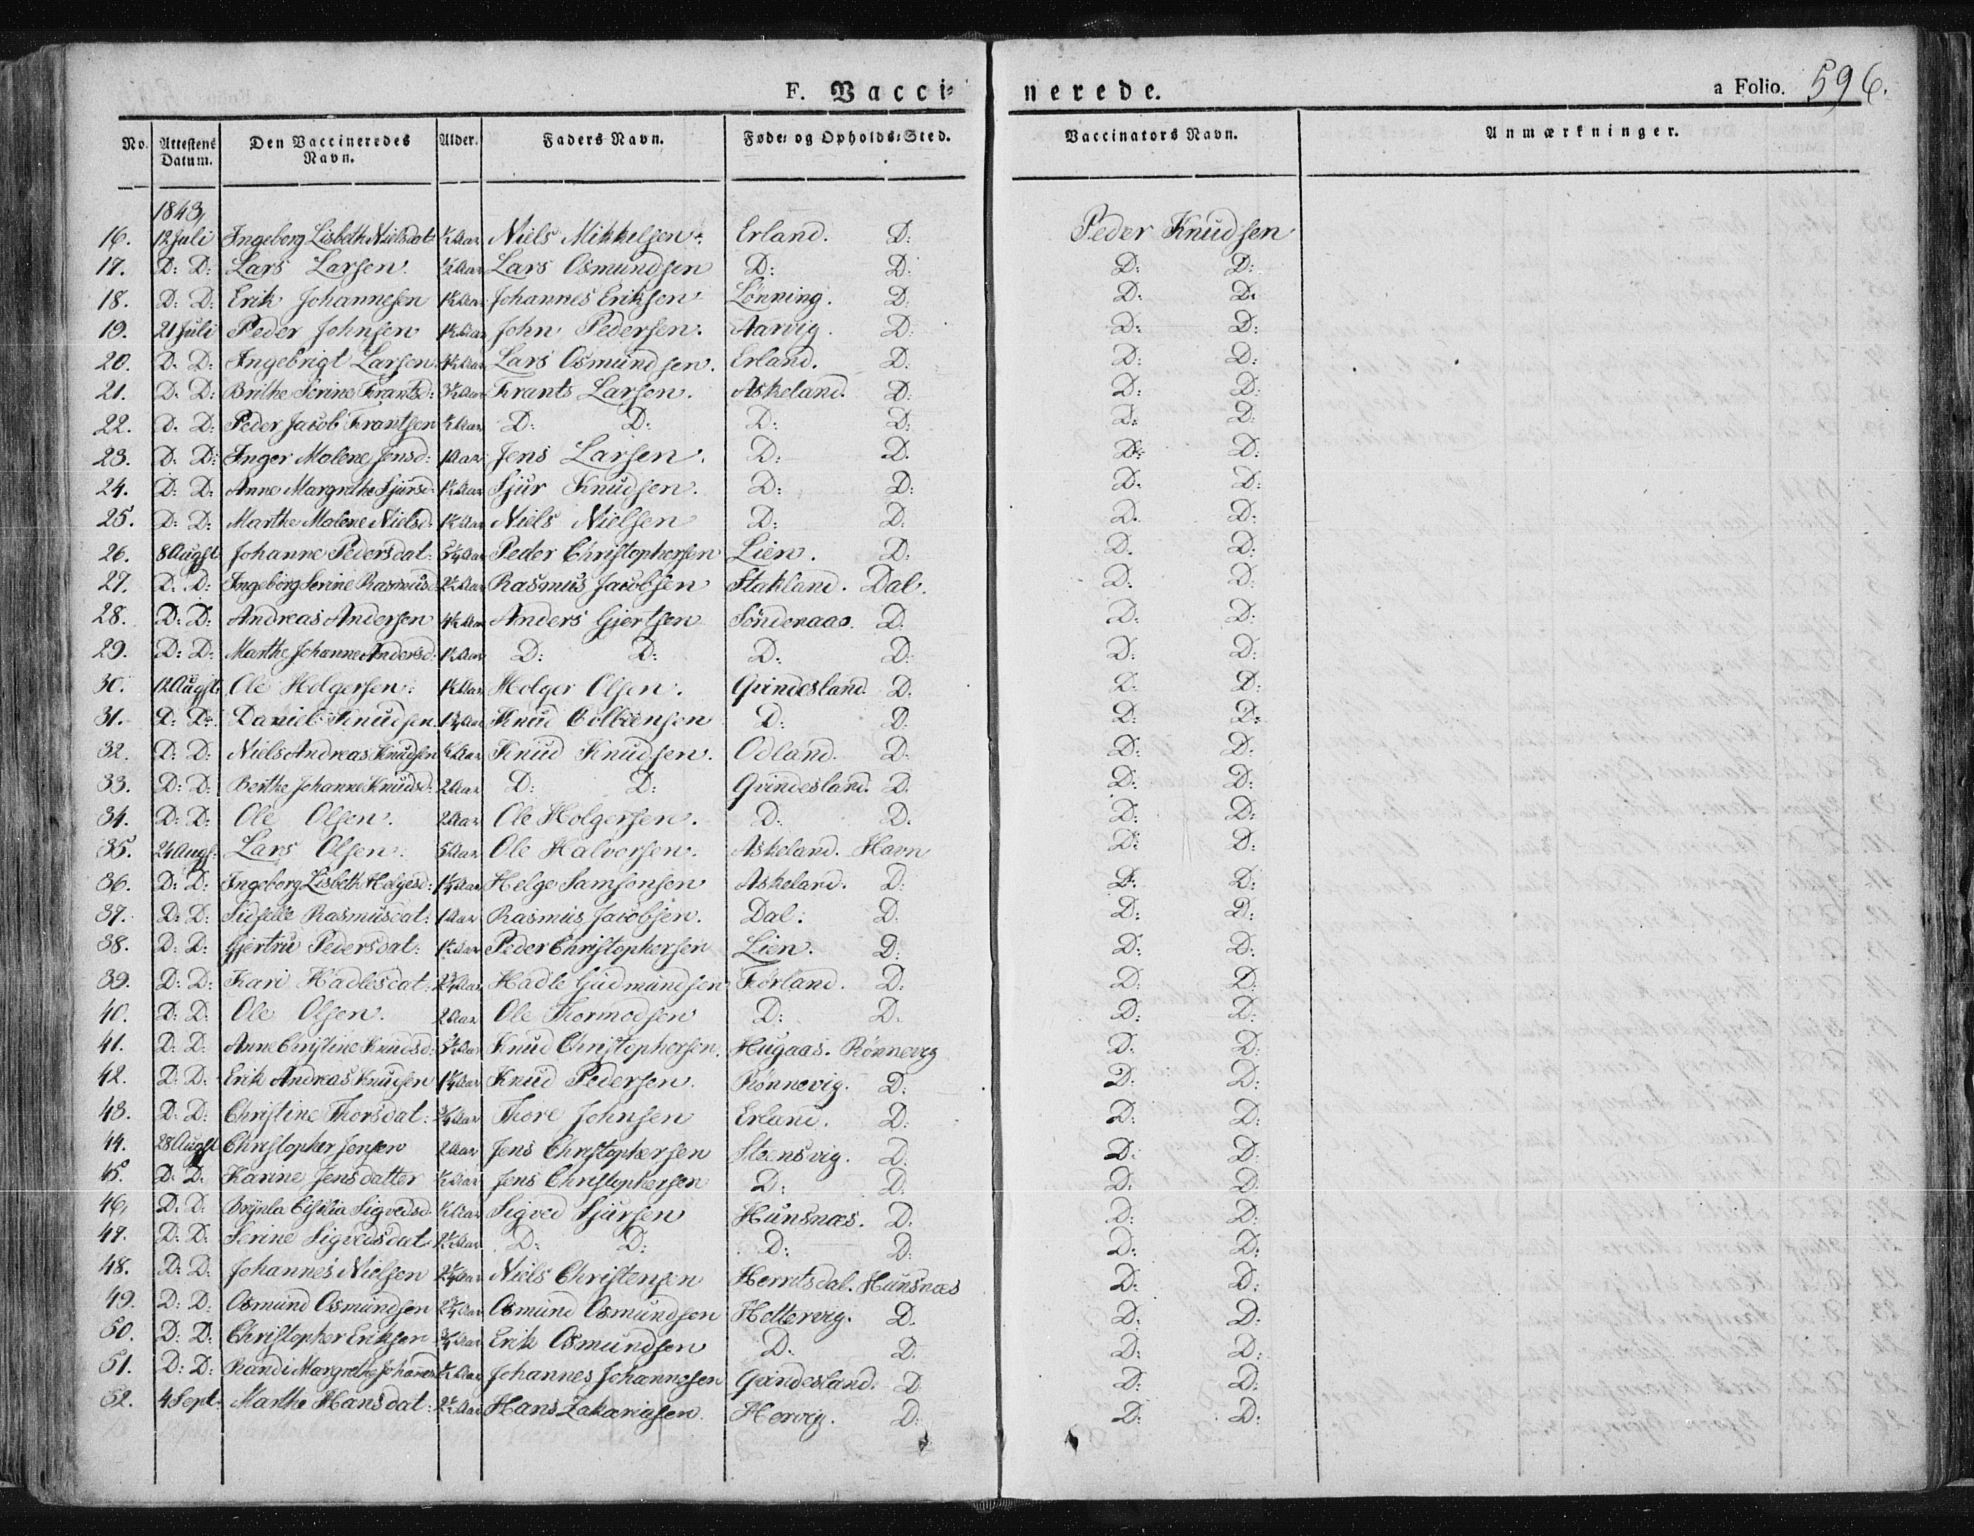 F. Vaccinerede. a Folio. 596.
No. Attestens Datum. Den Vaccineredes Navn. Alder. Faders Navn. Føde- og Opholds-Sted. Vaccinators Navn. Anmærkninger.
1843,
16. 12 Juli Ingeborg Lisbeth Nielsdat: ½ Aar Niels Mikkelsen. Erland. D: Peder Knudsen
17. D: D: Lars Larsen. ½ Aar Lars Osmundsen D: D: D: D:
18. D: D: Erik Johannesen 1½ Aar Johannes Eriksen Lønning. D: D: D:
19. 21 Juli Peder Johnsen 1½ Aar John Pedersen. Aarvig. D: D: D:
20. D. D: Ingebrigt Larsen. 4½ Aar Lars Osmundsen. Erland. D: D: D:
21. D. D: Brithe Serine Frantsd: 3½ Aar Frants Larsen. Askeland. D: D: D:
22. D. D: Peder Jacob Frantsen ½ Aar D: D: D: D: D: D:
23. D. D: Inger Malene Jensd: 1 Aar Jens Larsen. D: D. D: D:
24. D: D. Anne Margrethe Sjursd: 1½ Aar Sjur Knudsen. D: D: D. D:
25. D: D: Marthe Malene Nielsd. 1½ Aar Niels Nielsen D: D: D. D:
26. 8 Augst Johanne Pedersdat: Aar Peder Christophersen Lien. D: D. D:
27. D. D: Ingeborg Serine Rasmusd: 2½ Aar Rasmus Jacobsen Stakland. Dal. D: D:
28. D: D: Andreas Andersen 4½ Aar Anders Gjertsen Söndenaas. D. D: D:
29. D: D: Marthe Johanne Andersd. 1½ Aar D: D: D: D: D: D:
30. 12 Augst. Ole Holgersen: 1½ Aar Holger Olsen. Gvindesland D. D: D:
31. D: D: Daniel Knudsen 1¾ Aar Knud D: D: D: D:
32. D: D: Niels Andreas Knudsen ½ Aar Knud Knudsen. Odland. D: D: D:
33. D: D: Berthe Johanne Knudsd: 2 Aar D: D: Gvindesland. D. D: D:
34. D: D: Ole Olsen. 2 Aar Ole Holgersen. D: D. D: D:
35. 24 Augs. Lars Olsen. 5 Aar Ole Halvorsen. Askeland. Havn D: D:
36. D: D: Ingeborg Lisbeth Helgesd: 1¼ Aar Helge Samsonsen Askeland. D: D: D:
37. D: D: Sidselle Rasmusdat: 1 Aar Rasmus Jacobsen. Dal: D: D: D:
38. D: D: Gjertru Pedersdat: 1½ Aar Peder Christophersen Lien. D: D: D:
39. D: D: Kari Hadlesdat: Aar Hadle Gudmundsen Førland. D: D: D:
40. D: D: Ole Olsen. 2 Aar Ole Thormodsen D: D. D: D:
41. D: D: Anne Christine Knudsd: Aar Knud Christophersen. Hugaas. Rønnevig D: D:
42. D: D: Erik Andreas Knudsen 1¼ Aar Knud Pedersen. Rønnevig. D: D: D:
43. D: D: Christine Thorsdat: ¾ Aar Thore Johnsen Erland. D: D: D:
44. 28 Augst Christopher Jensen 2 Aar Jens Christophersen Steensvig. D: D: D:
45. D: D. Karine Jensdatter ½ Aar Jens Christophersen D: D: D: D:
46. D. D: Brynla Sigvedsd ½ Aar Sigved Sjursen Hunsnæs. D. D: D:
47. D: D: Serine Sigvedsdat 2½ Aar D: D: D: D: D: D:
48. D: D: Johannes Nielsen Aar Niels Christensen Herritsdal. Hunsnæs D: D:
49. D: D: Osmund Osmundsen Aar Osmund Osmundsen Hettervig. D. D: D:
50. D: D: Christopher Eriksen ¾ Aar Erik Osmundsen D: D. D: D:
51. D: D: Randi Margrethe Johannesd ½ Aar Johannes Johannesen Gvindesland. D D: D:
52. 4 Sept. Marthe Hansdat: Aar Hans Zakariasen. Hervig. D: D: D: